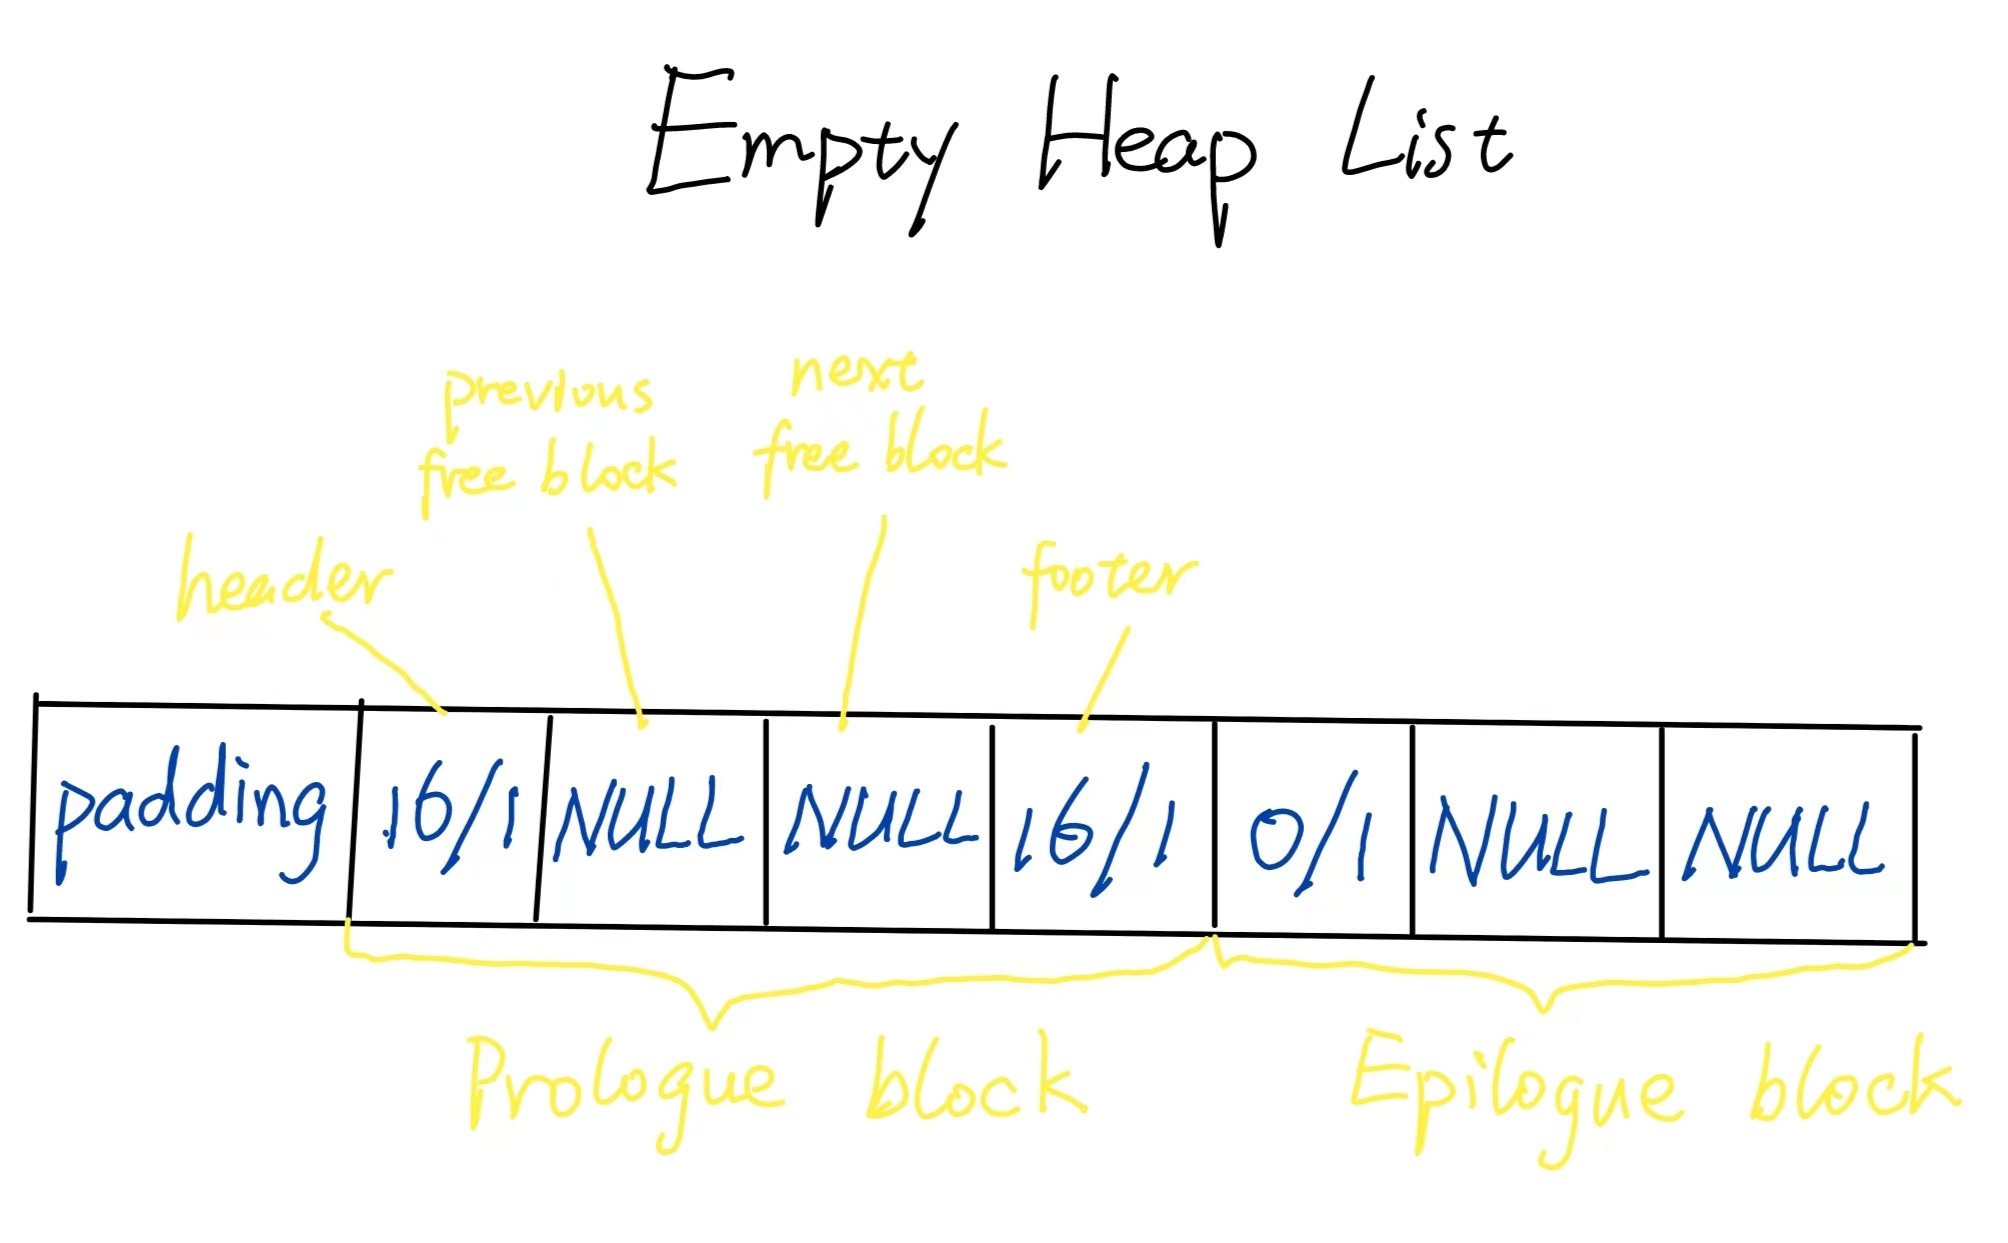 Empty Heap List
previous
free block
next
free block
header
footer
padding 16/1 NULL NULL 16/1 0/1 NULL NULL
Prologue block Epilogue block